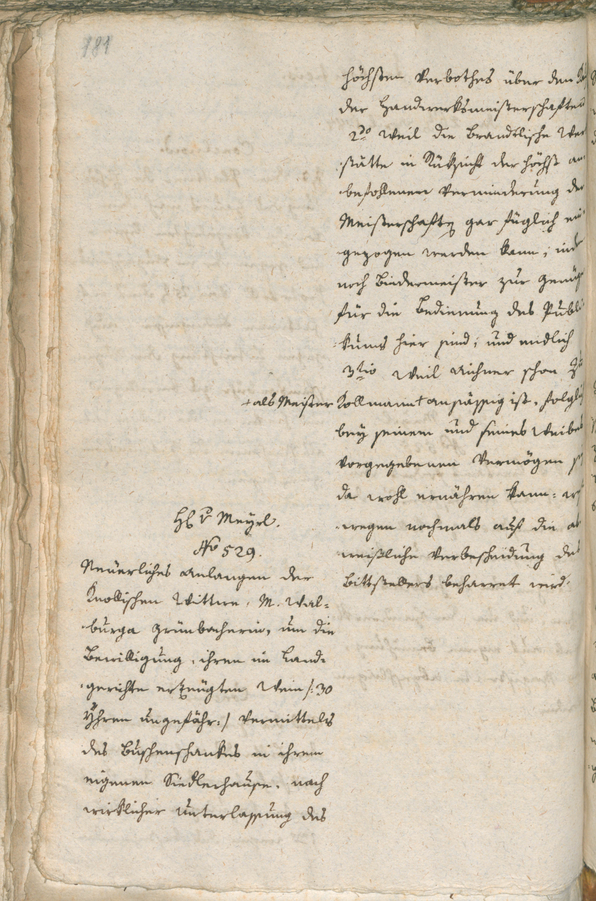 181
höchsten Verbothes über den
der Handwerksmeisterschaften
2do Weil die Brandtlische Wer
stätte in Rüksicht der höchst an
befohlenen Verminderung der
Meisterschaften gar füglich ein
gezogen werden kann; inde
noch Bindermeister zur Genüge
für die Bedienung des Publi
kums hier sind; und endlich
3tio Weil Aichner schon zu
+ als Meister
Kollmann + ansässig ist, folgli
bey seinem und seines Weibes
vorgegebenen Vermögen
da wohl ernähren kann:
wegen nochmals auf die ab
weißliche Verbescheidung des
Bittstellers beharret wird.
H. v. Meyrl.
No 529.
Neuerliches Anlangen der
Knollischen Wittwe, M. Wal-
burga Grünbacherin, um die
Bewilligung, ihren im Land-
gerichte erzeugten Wein /: 30
Yhren ungefähr :/ vermittels
des Buschenschankes in ihrem
eigenen Siedlerhause, nach
wirklicher Unterlassung des